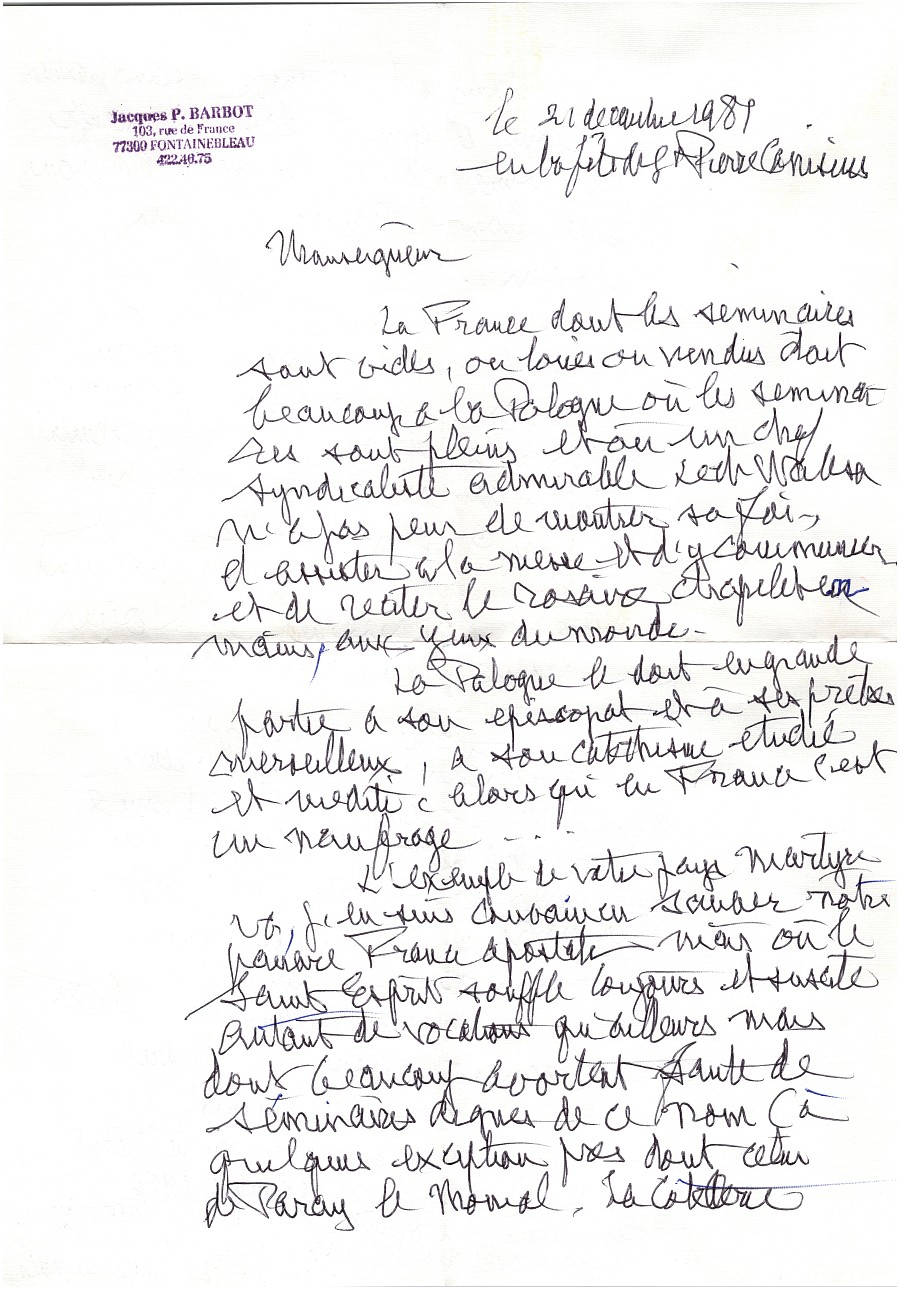 Jacques P. BARBOT
103, rue de France
77300 FONTAINEBLEAU
422.46.75
le 21 decembre 1981
en la fête de St Pierre Canisius
Monseigneur
La France dont les séminaires
sont vides, ou loués ou vendus doit
beaucoup a la Pologne où les semina-
ires sont pleins et où un chef
syndicaliste admirable Lech Walesa
n'a pas peur de montrer sa foi,
d'assister à la messe et d'y communier
et de reciter le rosaire chapelet en
mains, aux yeux du monde.
La Pologne le doit en grande
partie a son episcopat et à ses prêtres
merveilleux, a son catéchisme etudié
et medité : alors qu'en France c'est
un naufrage ....
L'exemple de votre pays martyre
va, j'en suis convaincu sauver notre
pauvre France apostate mais où le
Saint Esprit souffle toujours et suscite
autant de vocations qu'ailleurs mais
dont beaucoup avortent faute de
séminaires dignes de ce nom (à
quelques exception près dont celui
de Paray le Monial.